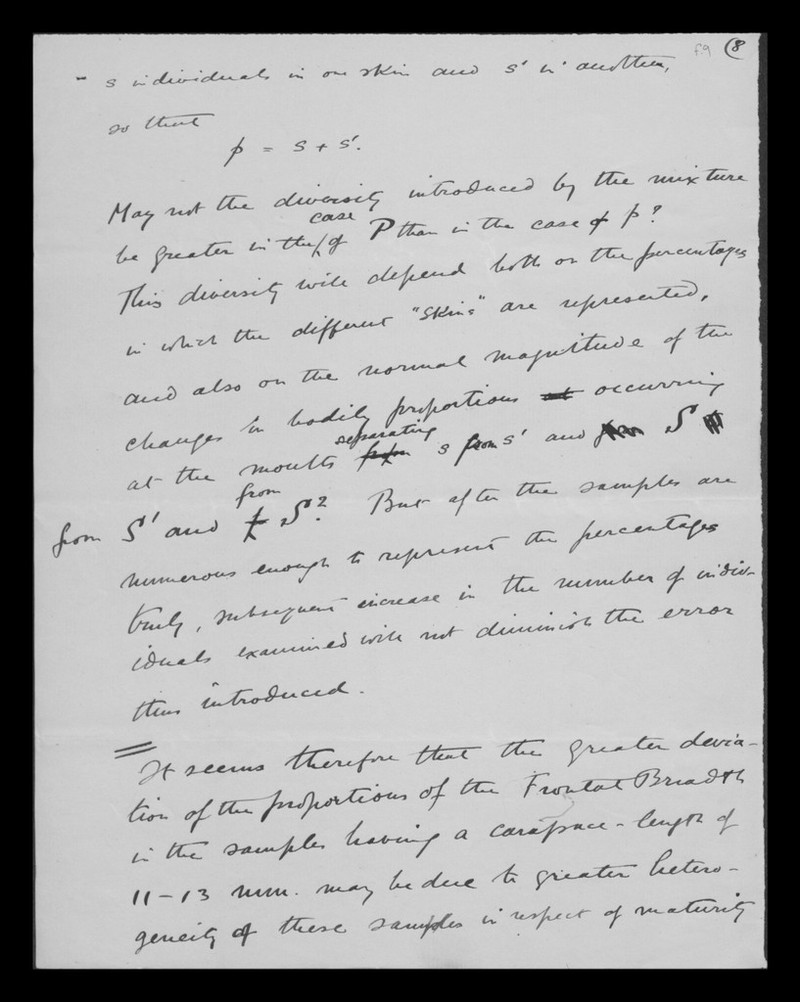 f9 (8
- s individuals in one skin and s' in another,
so that
p = s + s'.
May not the diversity introduced by the mixture
case
be greater in the of P than in the case of p?
This diversity will depend both on the percentages
in which the different "skins" are represented,
and also on the normal magnitude of the
changes in bodily proportions at occurring
separating
at the moults from s from s' and from S
from
from S' and S?. But after the samples are
numerous enough to represent the percentages
truly, subsequent increase in the number of indiv-
iduals examined will not diminish the error
thus introduced.
It seems therefore that the greater devia-
tion of the proportions of the Frontal Breadth
in the samples having a carapace-length of
11-13 mm. may be due to greater hetero-
geneity of these samples in respect of maturity